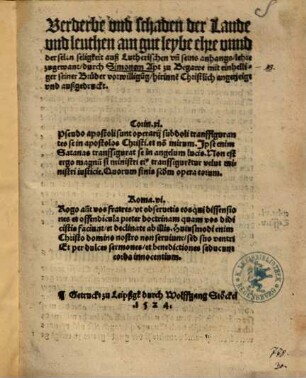 Verderbe vnd schaden der Lande
vnd leuthen am gut leybe ehre vnnd
der selen seligkeit auß Lutherischen vñ seins anhangs lehre
zugewant / durch Simonem Apt zu Begaw mit einhelli-
ger seiner Brüder vorwilligũg / hirinnẽ Christlich angezeigt
vnd außgedruckt.
Corin. xi.
Pseudo apostoli sunt operarij subdoli transfiguran
tes se in apostolos Christi. et nõ mirum. Ipse enim
Satanas transfigurat se in angelum lucis. Non est
ergo magnũ si ministri eiꝰ transfigurẽtur velut mini
stri iusticie. Quorum finis scḋm opera eorum.
Roma. vi.
Rogo aũt vos fratres: vt obseruetis eos qui dissensio
nes et offendicula preter doctrinam quam vos didi
cistis faciũt: et declinate ab illis. Huiusmodi enim
Christo domino nostro non seruiunt: sed suo ventri
Et per dulces sermones et benedictiones seducunt
corda innocentium.
¶ Getruckt zu Leipßgk durch Wolffgang Stöckel
1524.